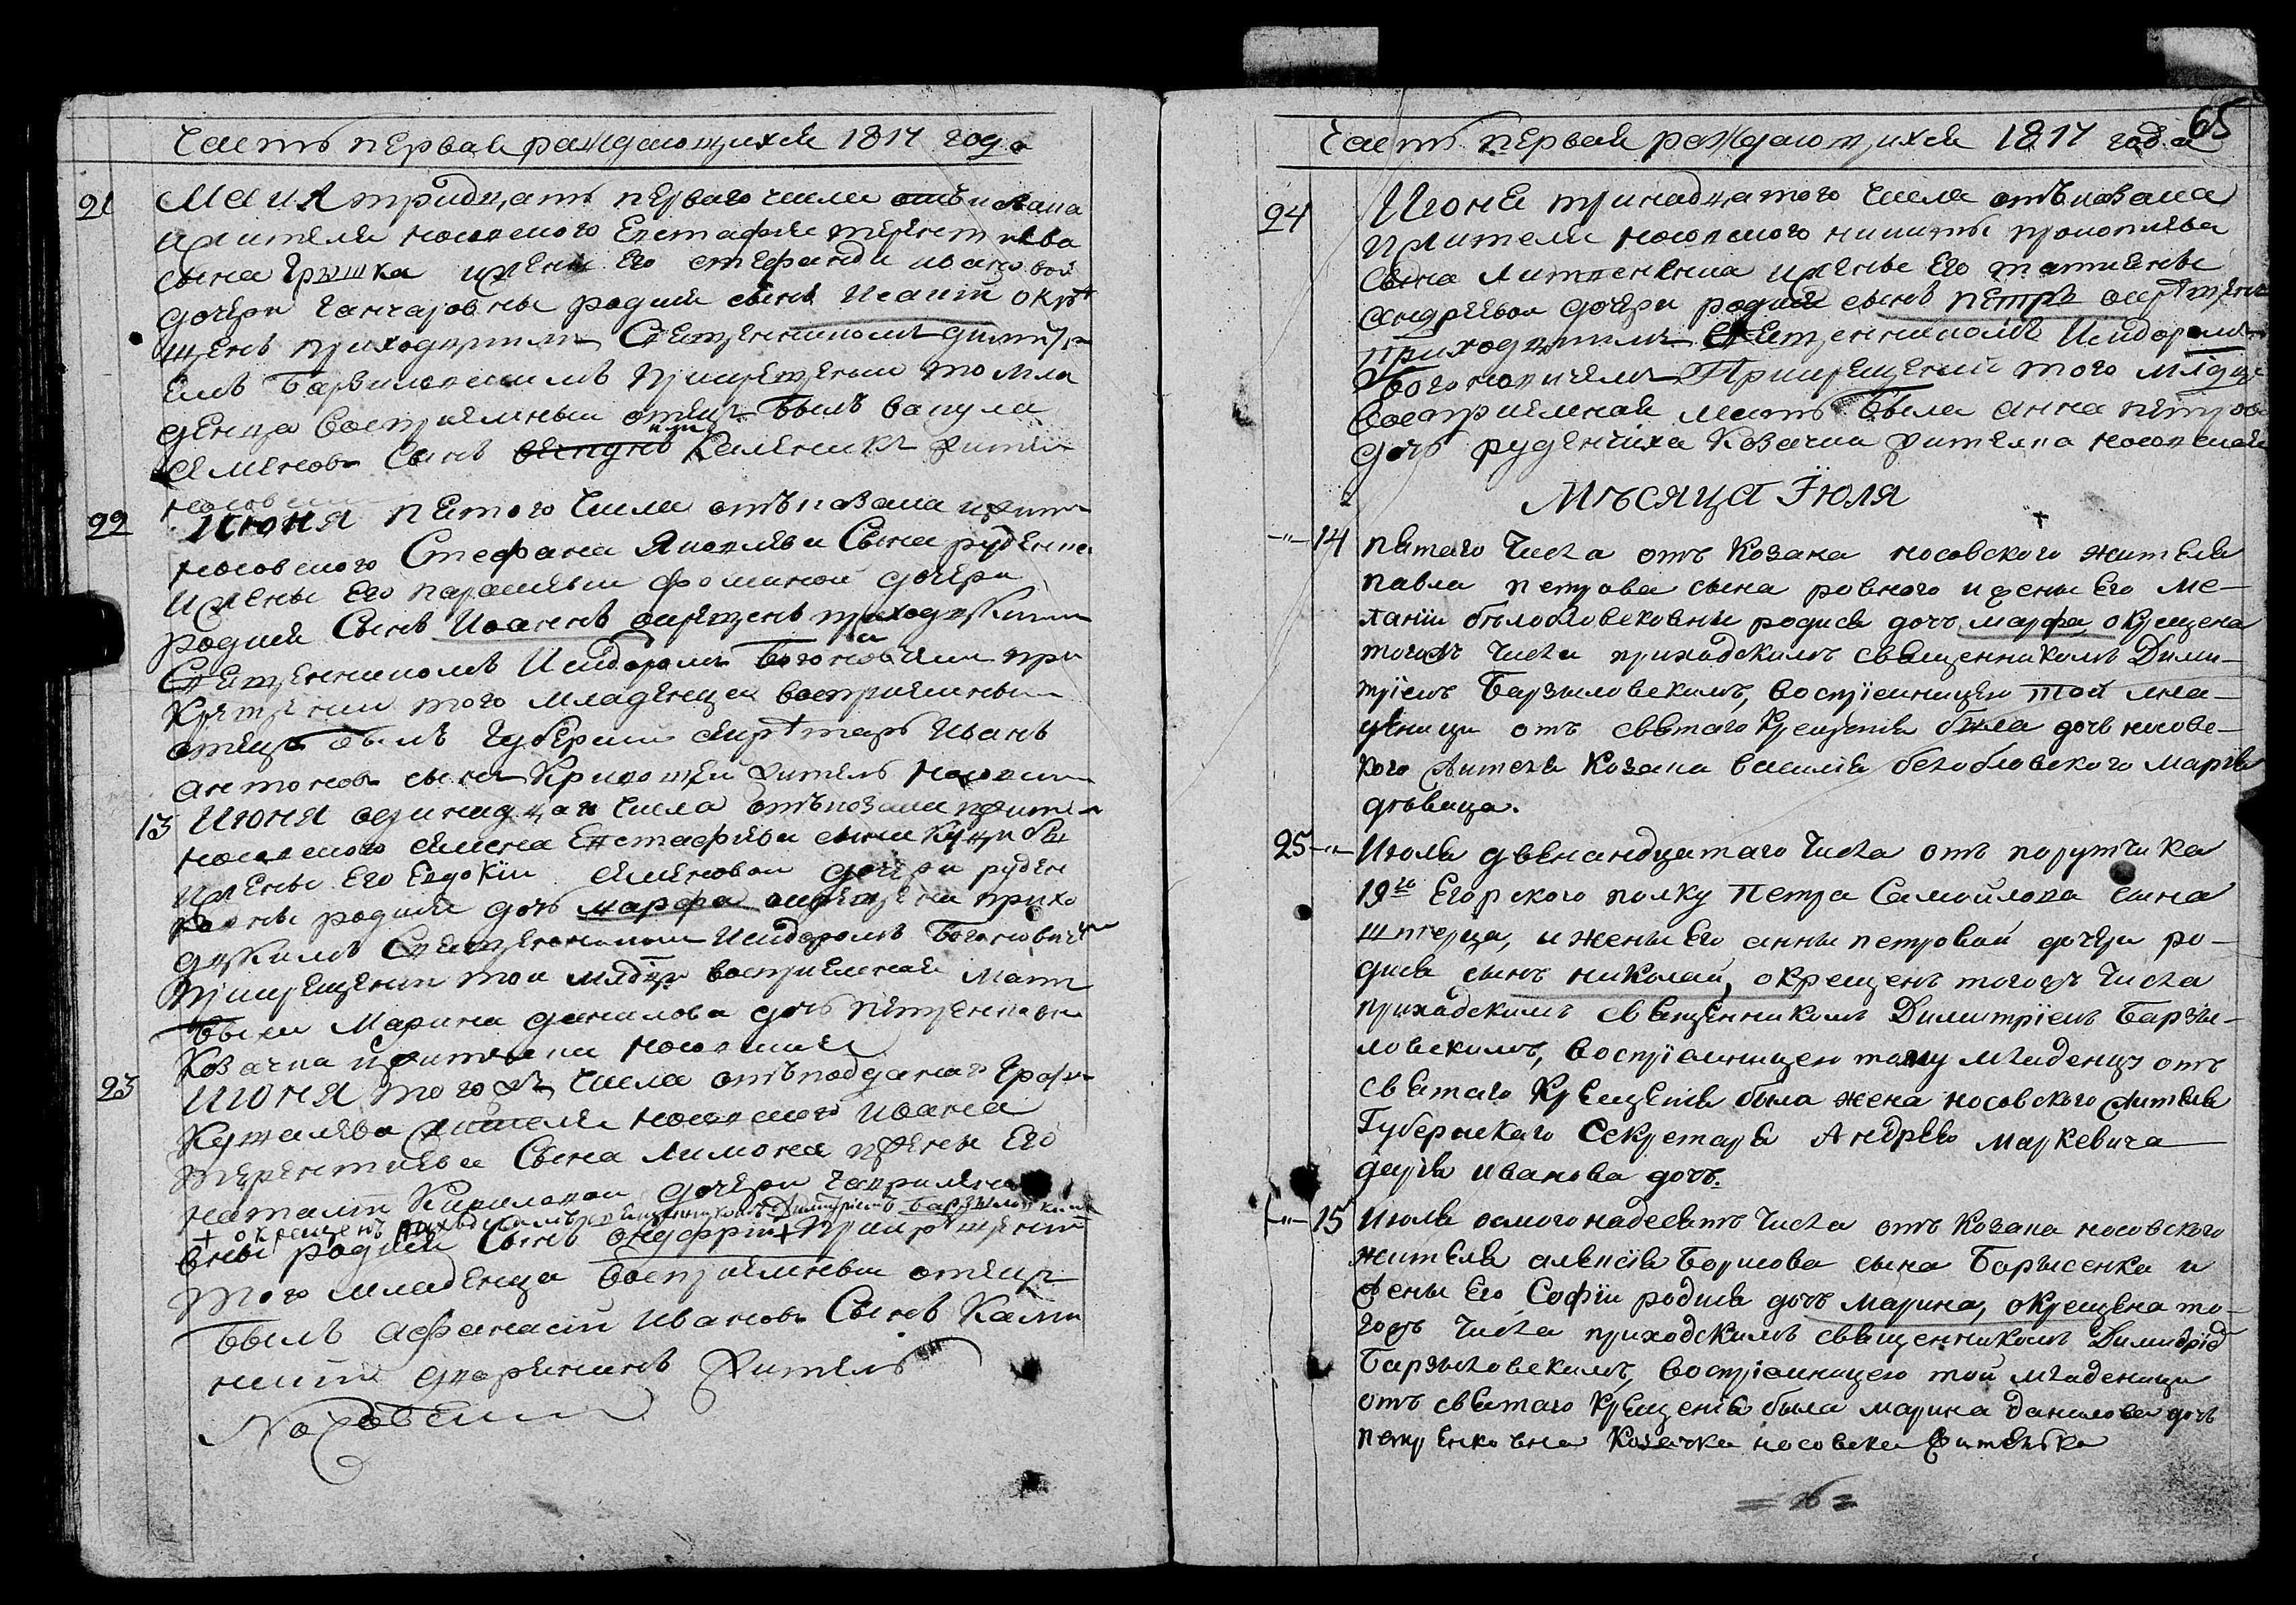 Часть первая раждающихся 1817 года
21 Маия тридцать первого числа отъ козака
и жителя носовского Евстафия терентиева
сына Грышка и жены Его стефаниди ивановой
дочери ганчаровны родился сынъ Исаий окре
щенъ приходцкимъ Священникомъ димитри
емъ Барзиловскимъ При крещении того мла
денца восприемный отецъ былъ вакула
семеновъ сынъ или Каленикъ жител
носовски
22 Июня пятого числа отъ козака и жит
носовского Стефана Яковлева Сына руденка
И жены Его параскевии фоминой дочери
родился Сынъ Иоаннъ окрещенъ приходцкимъ
Священникомъ Исидоромъ Богоновичемъ при
Крещении того младенца восприемный
отецъ былъ Губернский секретарь Иванъ
антоновъ сынъ Кривошей житель носовский
13 Июня одинадцаго числа отъ козака и жите
носовского семена Евстафиева сына Куцибы
И жены Его Евдокии семеновой дочери руден
ковны родилась дочь марфа окрещена прихо
дцкимъ Священникомъ Исидоромъ Богоновичем
При крещении той млдцы восприемная мати
была Марина данилова дочь петренковна
Козачка и жителка носовская
23 Июня того жъ числа отъ подданого графа
жителя носовского ивана
терентиева Сына Лимона и жены Его
наталии Кириловой дочери гаврилен
+ окрещенъ приходскимъ священникомъ Димитриемъ Барзыловскимъ
вны родился Сынъ онуфрий + При крещении
того младенца восприемный отецъ
былъ афанасий ивановъ Сынъ Ками
нский дворянинъ житель
Носовский
65
Часть первая раждающихся 1817 года
24 Июня тринадцатого числа отъ козака
И жителя носовского никиты прокопиева
Сына Литвененка и жены Его татиены
андреевой дочери родился сынъ петръ окрещенъ
приходцкимъ Священникомъ Исидоромъ
Богоновичемъ При крещении того млдца
восприемная мать была анна петрова
дочь руденчиха Козачка жителка носовская
Мѣсяца Іюля
-"- 14 пятаго Числа отъ Козака носовского жителя
павла петрова сына ровного и жены Его Ме-
ланіи бѣлобловсковны родися дочъ марфа, окрещена
тогожъ Числа приходскимъ священникомъ Дими-
тріемъ Барзыловскимъ, воспріемницею той мла-
деници отъ святаго Крещенія была дочъ носовс-
кого жителя Козака василія белобловского Марія
дѣвица.
25 -"- Июля двенандцатаго Числа отъ порутчика
19го Егорского полку Петра Самойлова сина
шперца, и жены Его анны петровой дочери ро-
дися сынъ николай, окрещенъ тогожъ Числа
приходскимъ священникомъ Димитріемъ Барзы-
ловскимъ, воспріемницею тому младенцу отъ
святаго Крещенія была жена носовского жителя
Губернскаго Секретаря Андрея Маркевича
дарія иванова дочъ.
-"- 15 Июля осмогонадесять Числа отъ Козака носовского
жителя алексія Борисова сына Борысенка и
жены Его Софіи родися дочъ марина, окрещена то-
гожъ Числа приходскимъ священникомъ Димитріем
Барзыловскимъ, воспріемницею той младеници
отъ святаго Крещенія была марина данилова дочъ
петренковна Козачка носовска жителька
= 26 =